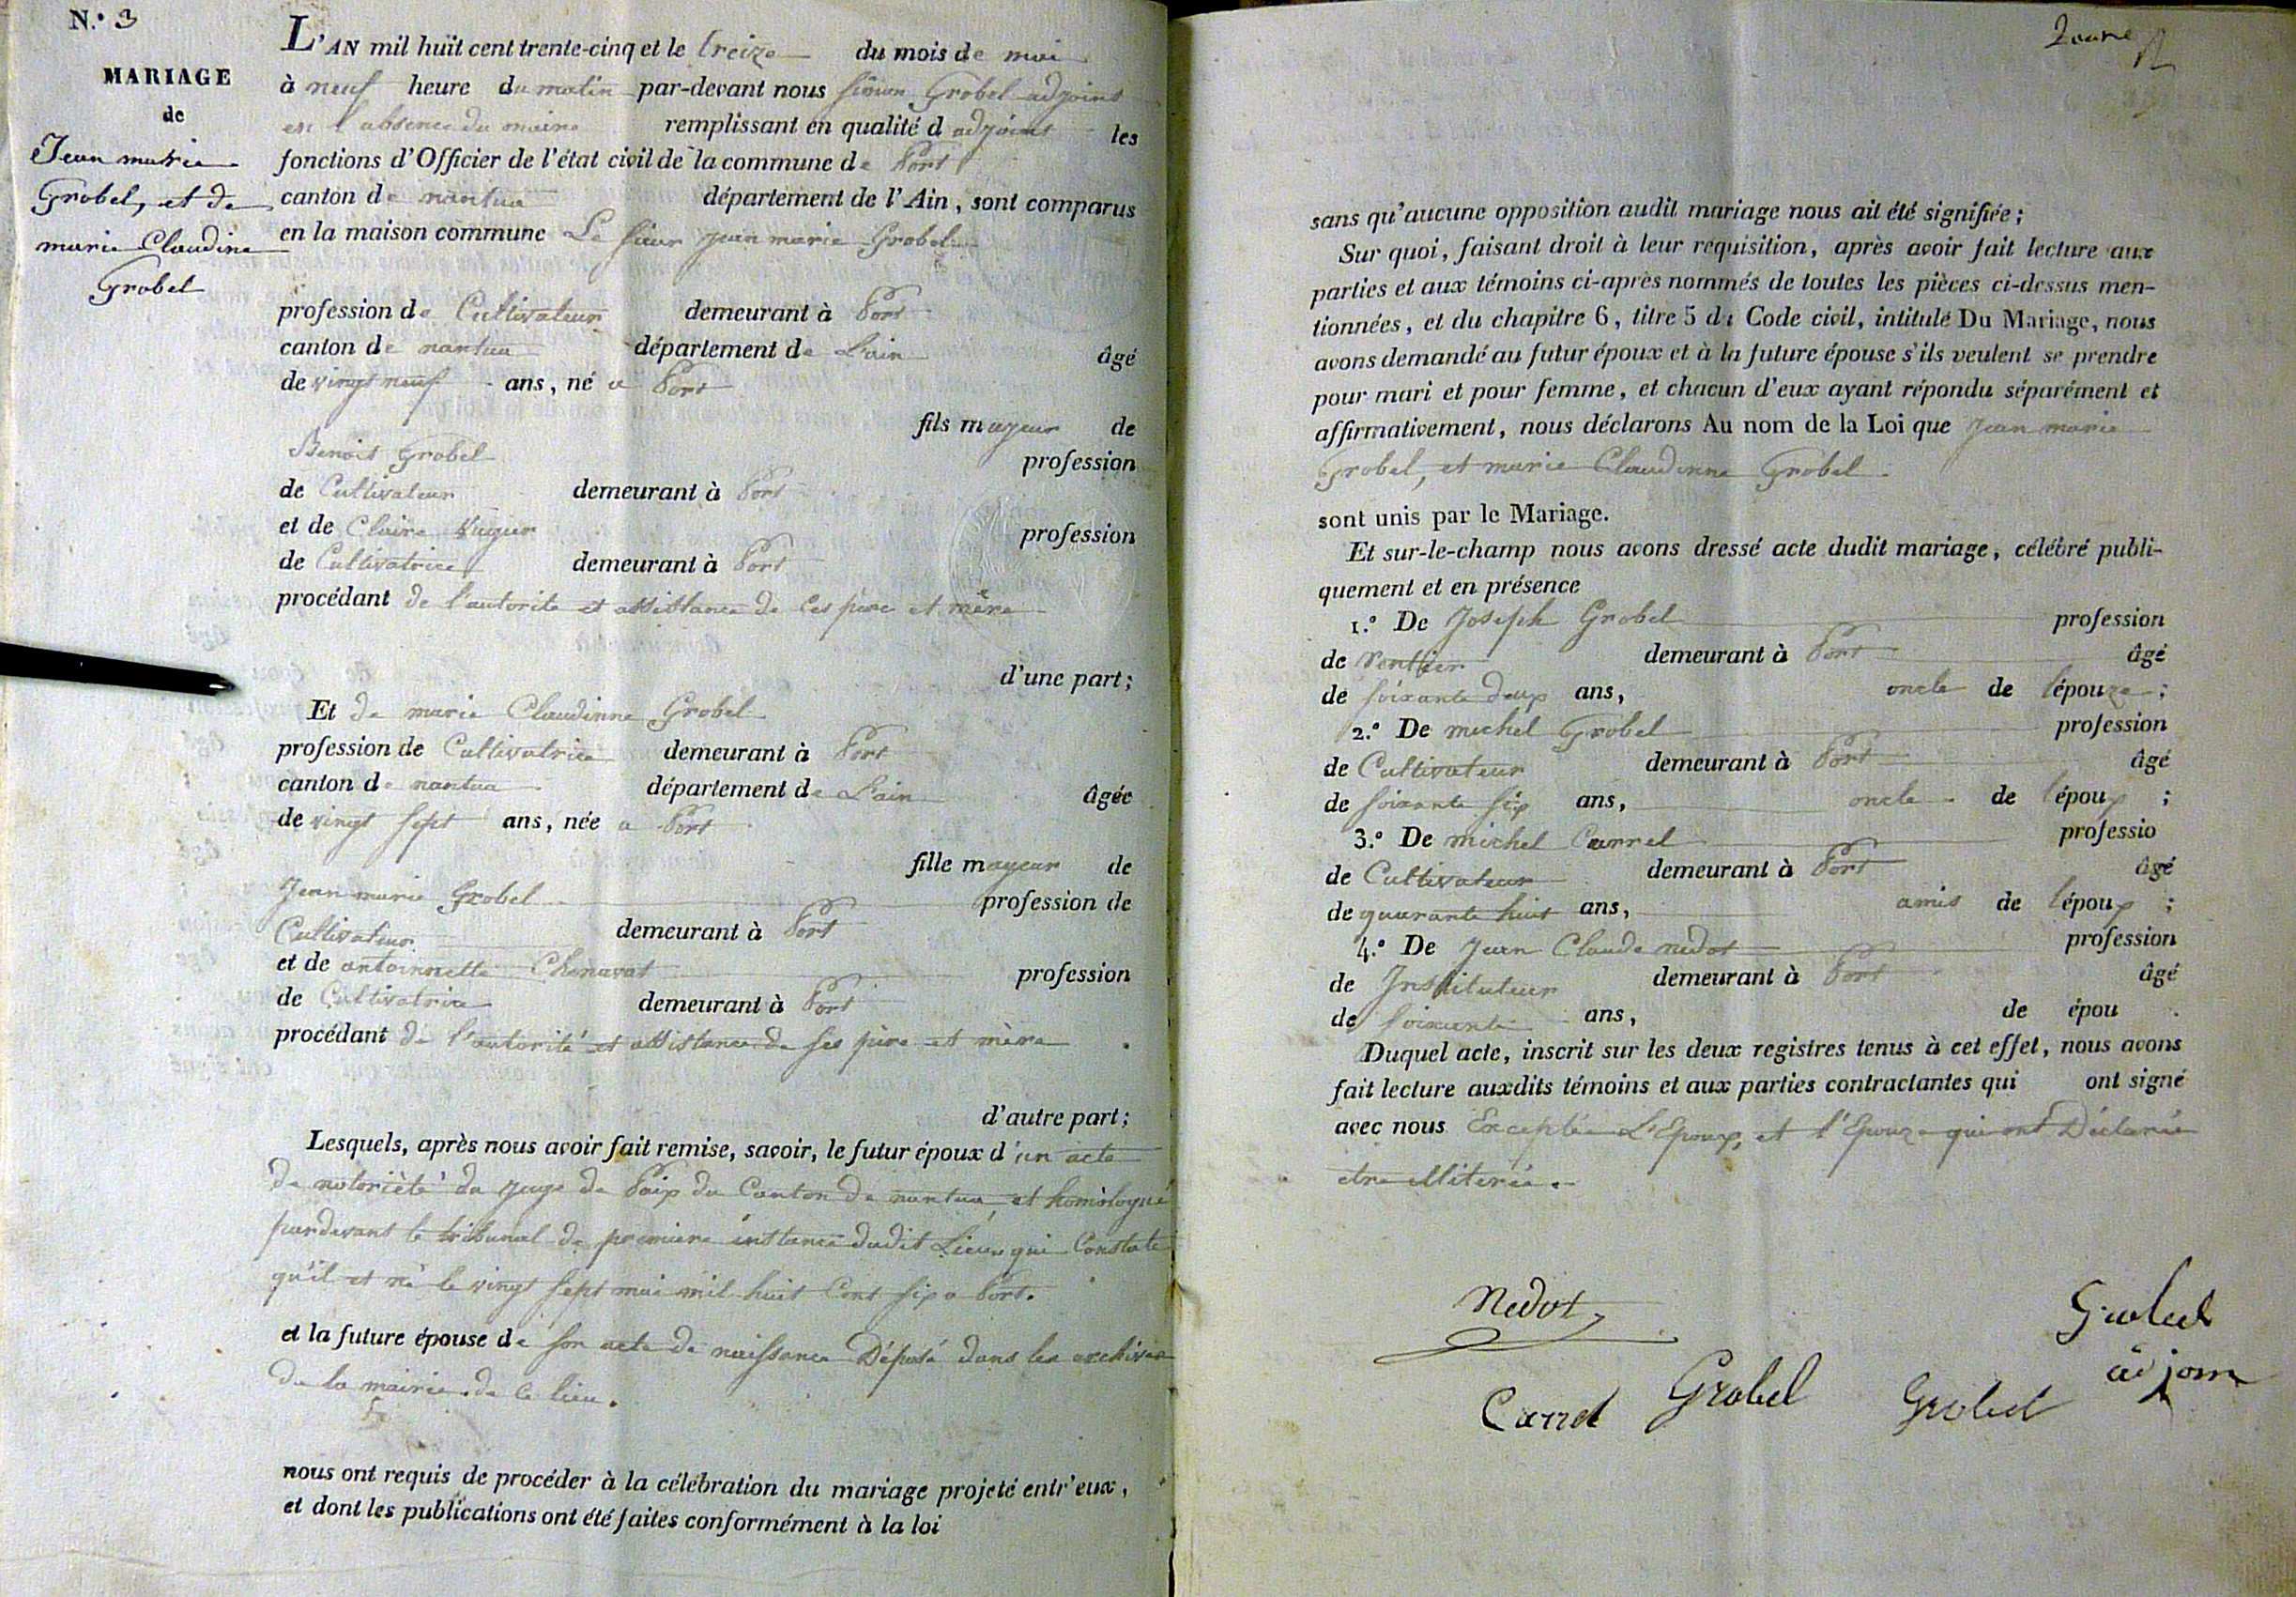 N.° 3
MARIAGE
de
Jean marie
Grobel, et de
marie Claudine
Grobel
L'AN mil huit cent trente-cinq et le treize du mois de mai
à neuf heure du matin par-devant nous simon Grobel adjoint
en l'absence du maire remplissant en qualité d adjoint les
fonctions d'Officier de l'état civil de la commune de Port
canton de nantua département de l'Ain, sont comparus
en la maison commune Le sieur jean marie Grobel
profession de Cultivateur demeurant à Port
canton de nantua département de L'ain âgé
de vingt neuf ans, né a Port
fils mayeur de
Benoit Grobel profession
de Cultivateur demeurant à Port
et de Claire profession
de Cultivatrice demeurant à Port
procédant de l'autorite et assistance de ces père et mère
d'une part;
Et de marie Claudinne Grobel
profession de Cultivatrice demeurant à Port
canton de nantua département de L'ain âgée
de vingt sept ans, née a Port
fille mayeur de
Jean marie Grobel profession de
Cultivateur demeurant à Port
et de antoinnette Chenavat profession
de Cultivatrice demeurant à Port
procédant de l'autorité et assistance de ses père et mère .
d'autre part;
Lesquels, après nous avoir fait remise, savoir, le futur époux d'un acte
de notorièté du juge de Paix du Canton de nantua, et homologué
pardevant le tribunal de première instance dudit Lieu, qui Constate
qu'il et né le vingt sept mai mil huit Cent six a Port.
et la future épouse de son acte de naissance Déposé dans les archives
de la mairie de ce lieu.
nous ont requis de procéder à la célébration du mariage projeté entr'eux,
et dont les publications ont été faites conformément à la loi
sans qu'aucune opposition audit mariage nous ait été signifiée;
Sur quoi, faisant droit à leur requisition, après avoir fait lecture aux
parties et aux témoins ci-après nommés de toutes les pièces ci-dessus men-
tionnées, et du chapitre 6, titre 5 du Code civil, intitulé Du Mariage, nous
avons demandé au futur époux et à la future épouse s'ils veulent se prendre
pour mari et pour femme, et chacun d'eux ayant répondu séparément et
affirmativement, nous déclarons Au nom de la Loi que jean marie
Grobel, et marie Claudinne Grobel
sont unis par le Mariage.
Et sur-le-champ nous avons dressé acte dudit mariage, célébré publi-
quement et en présence
1.° De Joseph Grobel profession
de rentier demeurant à Port âgé
de soixante deux ans, oncle de lépouze;
2.° De michel Grobel profession
de Cultivateur demeurant à Port âgé
de soixante six ans, oncle de lépoux;
3.° De michel Carrel professio
de Cultivateur demeurant à Port âgé
de quarante huit ans, amis de lépoux;
4.° De Jean Claude nedot profession
de Instituteur demeurant à Port âgé
de soixante ans, de épou .
Duquel acte, inscrit sur les deux registres tenus à cet effet, nous avons
fait lecture auxdits témoins et aux parties contractantes qui ont signé
avec nous Exceptée L'Epoux, et l'Epouze qui ont Déclarée
etre illiterée.
Nedot
Grobel
adjoin
Carrel Grobel Grobel